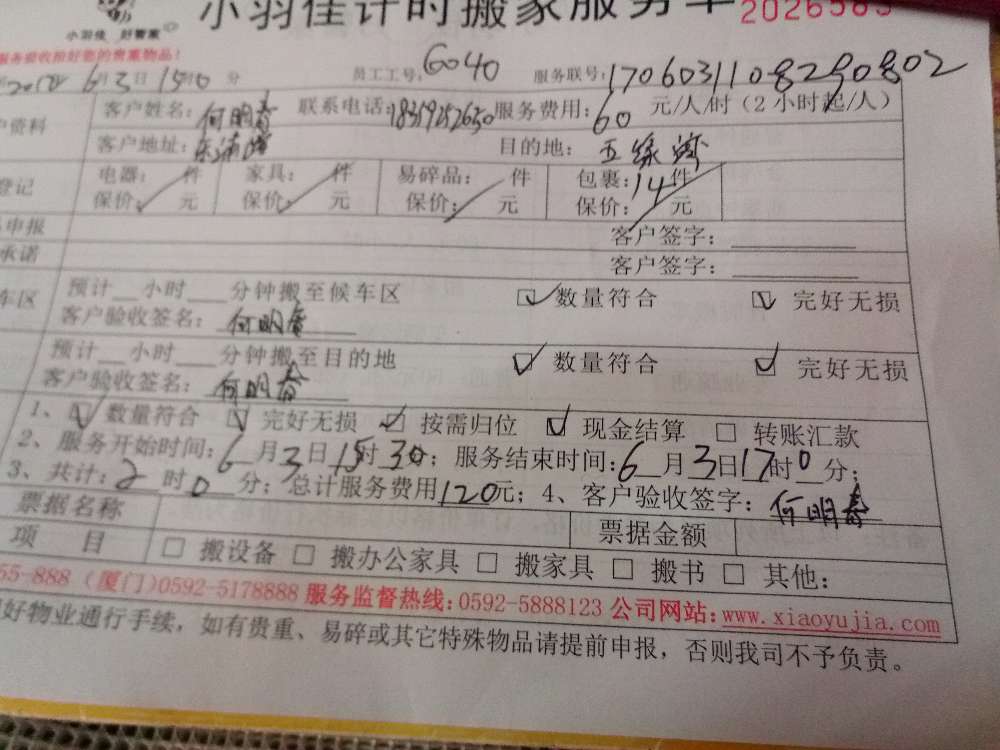 小羽佳计时搬家服务单 2026583
小羽佳 好管家
服务验收拍好您的贵重物品!
6月3日15时10分 员工工号:6040 服务联号:1706031108290802
户资料 客户姓名:何明春 联系电话:18319252650 服务费用:60元/人/时(2小时起/人)
客户地址: 目的地:五缘湾
登记 电器: 件 家具: 件 易碎品: 件 包裹:14件
保价: 元 保价: 元 保价: 元 保价: 元
申报 客户签字:
承诺 客户签字:
车区 预计 小时 分钟搬至候车区 ☑ 数量符合 ☑ 完好无损
客户验收签名:何明春
预计 小时 分钟搬至目的地 ☑ 数量符合 ☑ 完好无损
客户验收签名:何明春
1、☑ 数量符合 ☑ 完好无损 ☑ 按需归位 ☑ 现金结算 □ 转账汇款
2、服务开始时间:6月3日15时30分;服务结束时间:6月3日17时0分;
3、共计:2时0分;总计服务费用120元;4、客户验收签字:何明春
票据名称 票据金额
项 目 □ 搬设备 □ 搬办公家具 □ 搬家具 □ 搬书 □ 其他:
55-888 (厦门)0592-5178888 服务监督热线:0592-5888123 公司网站:www.xiaoyujia.com
好物业通行手续,如有贵重、易碎或其它特殊物品请提前申报,否则我司不予负责。